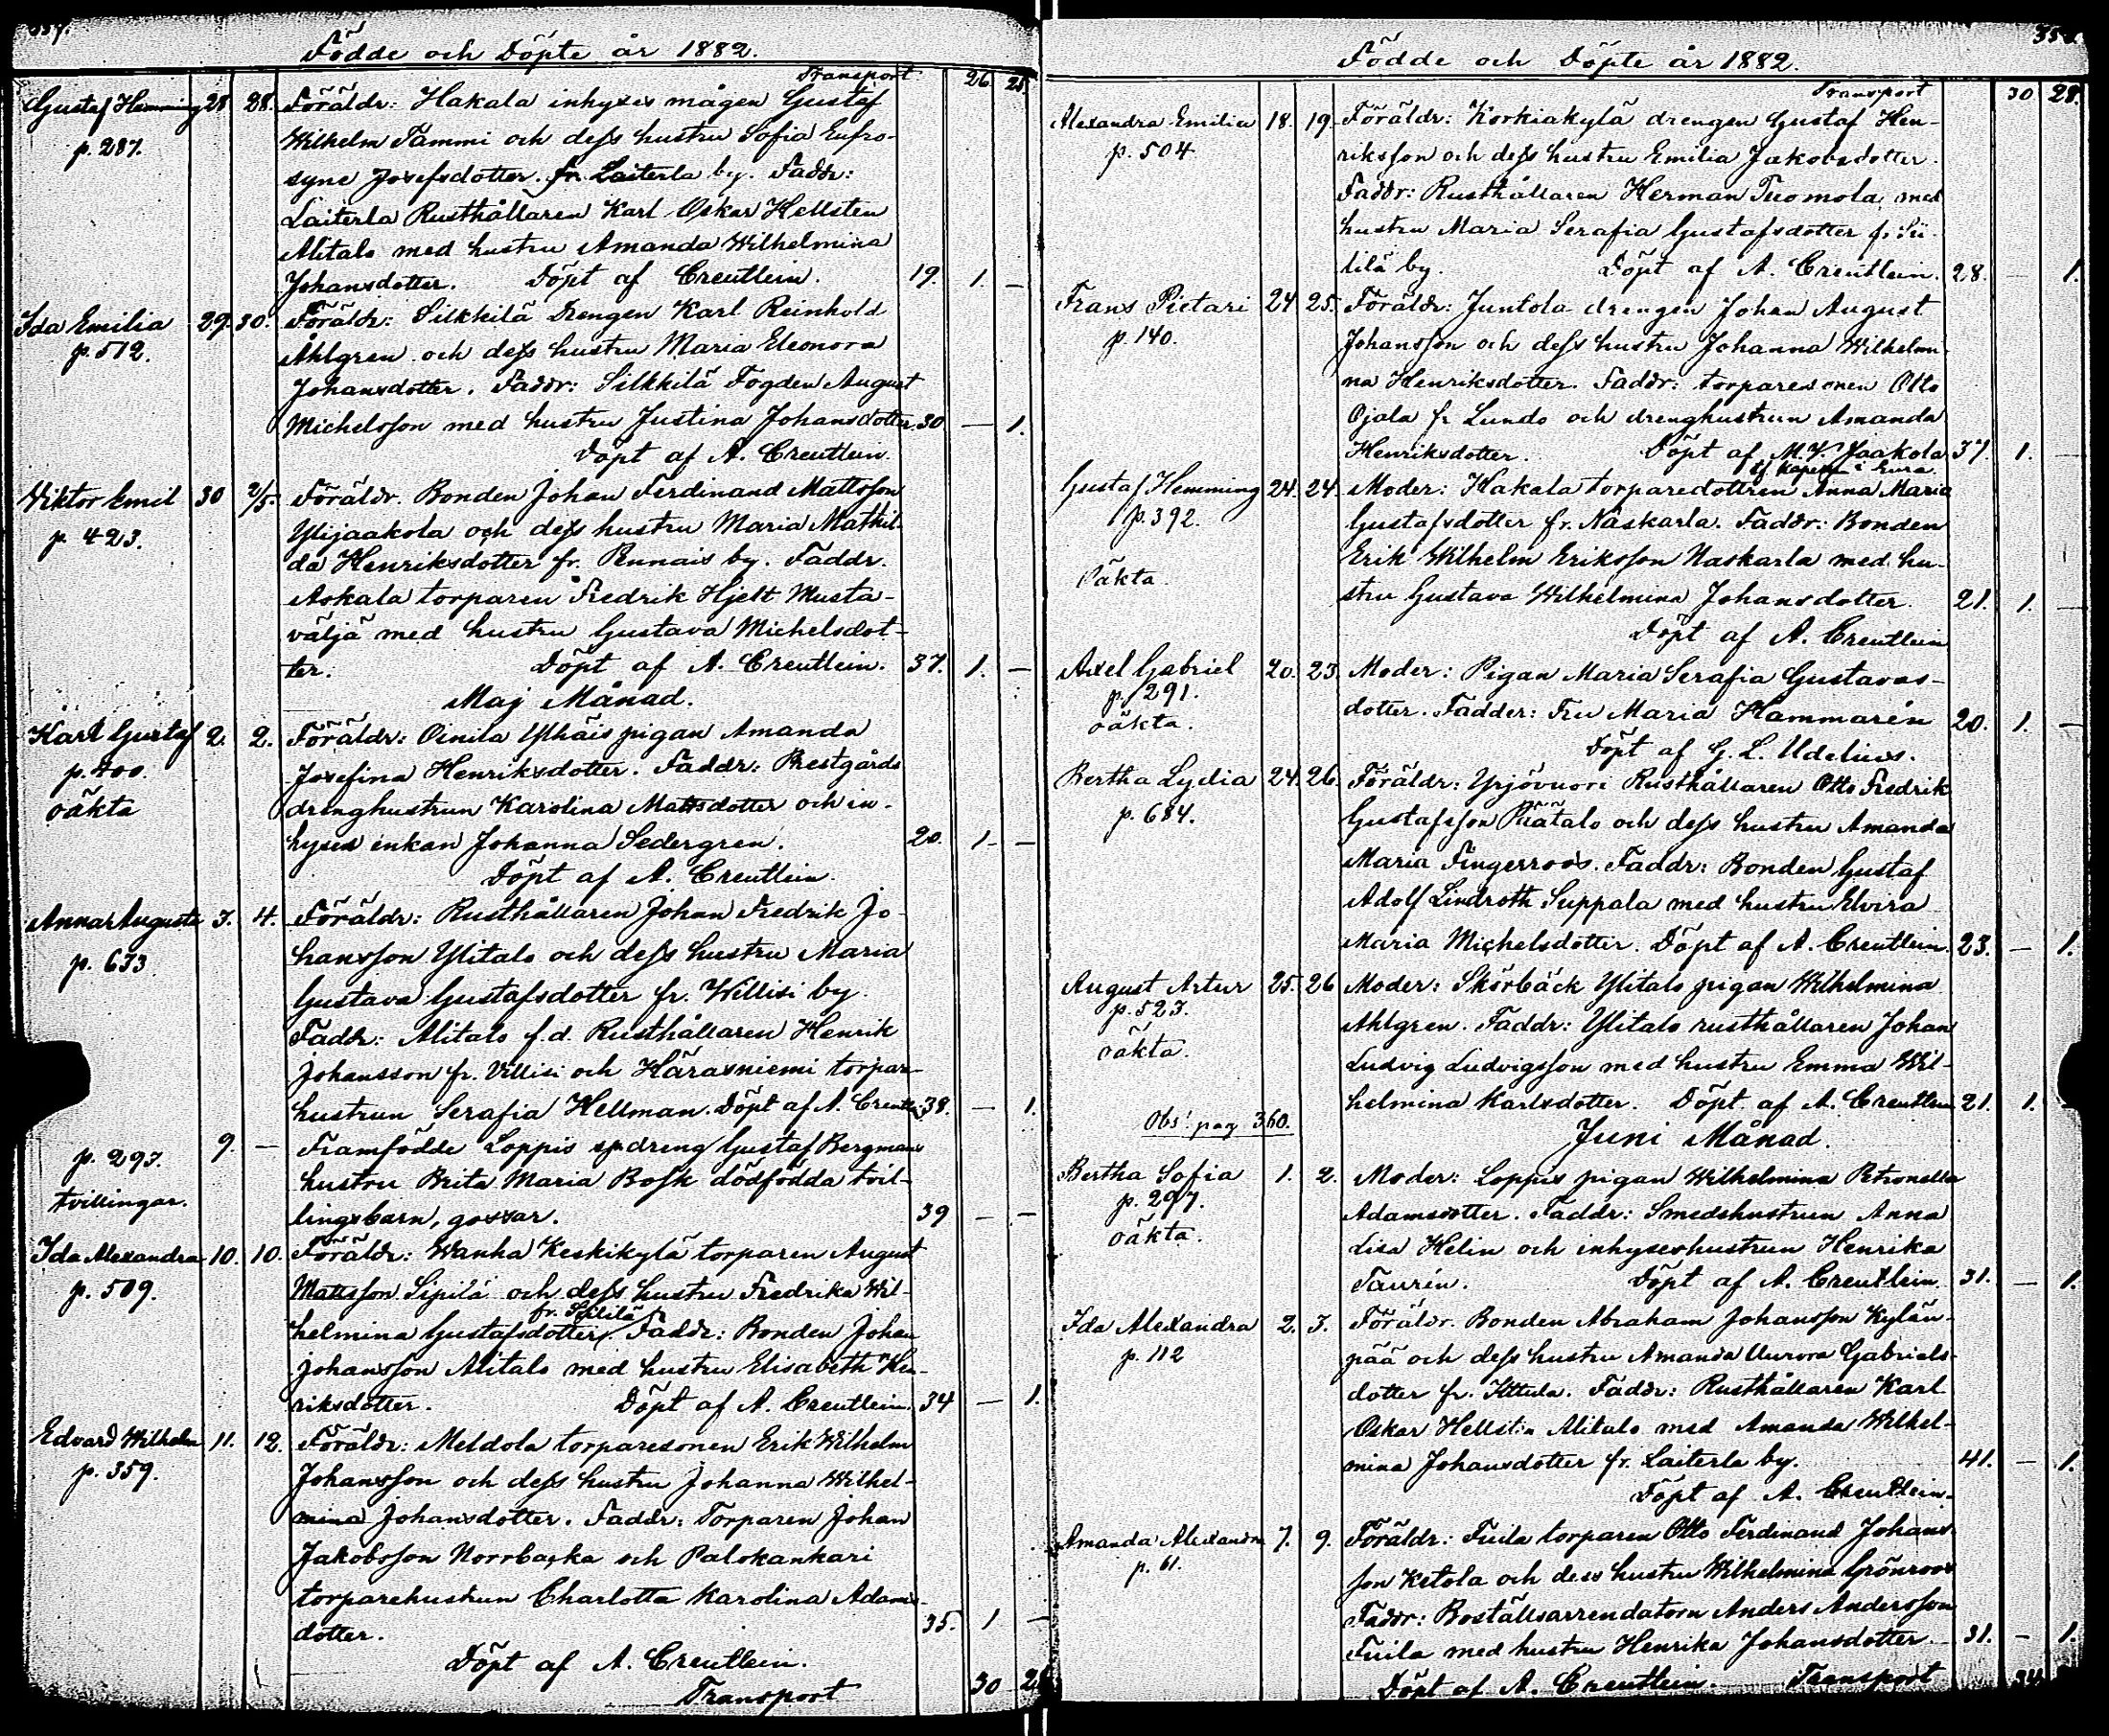 Födde och Döpte år 1882.
Transport 26. 25.
Gustaf Hemming 28 28. Föräldr: Hakala inhyses mågen Gustaf
p. 287. Wilhelm Tammi och dess hustru Sofia Eufro-
syne Josefsdotter. fr. Laiterla by. Faddr:
Laiterla Rusthållaren Karl Oskar Hellsten
Alitalo med hustru Amanda Wilhelmina
Johansdotter. Döpt af Creutlein. 19. 1. –
Ida Emilia 29. 30. Föräldr: Silkkilä Drengen Karl Reinhold
p. 512. Åhlgren och dess hustru Maria Eleonora
Johansdotter. Faddr: Silkkilä Fogden August
Michelsson med hustru Justina Johansdotter. 30 – 1.
Döpt af A. Creutlein.
Viktor Emil 30 2/5. Föräldr. Bonden Johan Ferdinand Mattsson
p. 423. Ylijaakola och dess hustru Maria Mathil-
da Henriksdotter fr. Pennais by. Faddr.
Askala torparen Fredrik Hjelt Musta-
väljä med hustru Gustava Michelsdot-
ter. Döpt af A. Creutlein. 37. 1. –
Maj Månad.
Karl Gustaf 2. 2. Föräldr: Oinila Ylhäis pigan Amanda
p. 400. Josefina Henriksdotter. Faddr: Prestgårds
oäkta drenghustrun Karolina Mattsdotter och in-
hyses enkan Johanna Sedergren. 20. 1. –
Döpt af A. Creutlein.
Anna Augusta 3. 4. Föräldr: Rusthållaren Johan Fredrik Jo-
p. 633 hansson Ylitalo och dess hustru Maria
Gustava Gustafsdotter fr. Willisi by.
Faddr: Alitalo f.d. Rusthållaren Henrik
Johansson fr. Villisi och Härasniemi torpar-
hustrun Serafia Hellman. Döpt af A. Creutlein 38. – 1.
p. 297. 9. – Framfödde Loppis spdreng Gustaf Bergmans
tvillingar. hustru Brita Maria Bosk dödfödda tvil-
lingsbarn, gossar. 39 – –
Ida Alexandra 10. 10. Föräldr: Wanha Keskikylä torparen August
p. 509. Mattsson Sipilä och dess hustru Fredrika Wil-
helmina Gustafsdotter fr. Siitilä. Faddr: Bonden Johan
Johansson Alitalo med hustru Elisabeth Hen-
riksdotter. Döpt af A. Creutlein. 34 – 1.
Edvard Wilhelm 11. 12. Föräldr: Meldola torparesonen Erik Wilhelm
p. 359. Johansson och dess hustru Johanna Wilhel-
mina Johansdotter. Faddr: Torparen Johan
Jakobsson Norrbacka och Palokankari
torparehustrun Charlotta Karolina Adams-
dotter. 35. 1 –
Döpt af A. Creutlein.
Transport 30 28
Födde och Döpte år 1882.
Transport 30 28.
Alexandra Emilia 18. 19. Föräldr: Korkiakylä drengen Gustaf Hen-
p. 504 riksson och dess hustru Emilia Jakobsdotter.
Faddr: Rusthållaren Herman Tuomola, med
hustru Maria Serafia Gustafsdotter fr. Sii-
tilä by. Döpt af A. Creutlein. 28. – 1.
Frans Pietari 24 25. Föräldr: Juntola drengen Johan August
p. 140. Johansson och dess hustru Johanna Wilhelmi-
na Henriksdotter. Faddr: torparesonen Otto
Ojala fr Lundo och drenghustrun Amanda
Henriksdotter. Döpt af M. V. Jaakola 37 1. –
tf Kapellan i Eura
Gustaf Hemming 24. 24 Moder: Hakala torparedottren Anna Maria
p. 392. Gustafsdotter fr. Näskarla. Faddr: Bonden
Erik Wilhelm Eriksson Naskarla med hu-
oäkta. stru Gustava Wilhelmina Johansdotter. 21. 1. –
Döpt af A. Creutlein
Axel Gabriel 20. 23. Moder: Pigan Maria Serafia Gustavas-
p. 291. dotter. Fadder: Fru Maria Hammarén 20. 1. –
oäkta. Döpt af G. L. Udelius.
Bertha Lydia 24. 26. Föräldr: Yrjövuori Rusthållaren Otto Fredrik
p. 684. Gustafsson Päätalo och dess hustru Amanda
Maria Fingerroos. Faddr: Bonden Gustaf
Adolf Lindroth Suppala med hustru Elvira
Maria Michelsdotter. Döpt af A. Creutlein. 23. – 1.
August Artur 25. 26 Moder: Skörbäck Ylitalo pigan Wilhelmina
p. 523. Ahlgren. Faddr: Ylitalo rusthållaren Johan
oäkta. Ludvig Ludvigsson med hustru Emma Wil-
helmina Karlsdotter. Döpt af A. Creutlein 21. 1.
Obs! pag 360.
Juni Månad.
Bertha Sofia 1. 2. Moder: Loppis pigan Wilhelmina Petronella
p. 297. Adamsdotter. Faddr: Smedshustrun Anna
oäkta. Lisa Helin och inhyseshustrun Henrika
Taurén. Döpt af A. Creutlein. 31. – 1.
Ida Alexandra 2. 3. Föräldr. Bonden Abraham Johansson Kylän-
p. 112 pää och dess hustru Amanda Aurora Gabriels-
dotter fr. Kttula. Faddr: Rusthållaren Karl
Oskar Hellstén Alitalo med Amanda Wilhel-
mina Johansdotter fr. Laiterla by. 41. – 1.
Döpt af A. Creutlein.
Amanda Alexandra 7. 9. Föräldr: Tuila torparen Otto Ferdinand Johans-
p. 61. son Ketola och dess hustru Wilhelmina Grönroos
Faddr: Boställsarrendatorn Anders Andersson
Tuila med hustru Henrika Johansdotter. 31. – 1.
Döpt af A. Creutlein. Transport 34